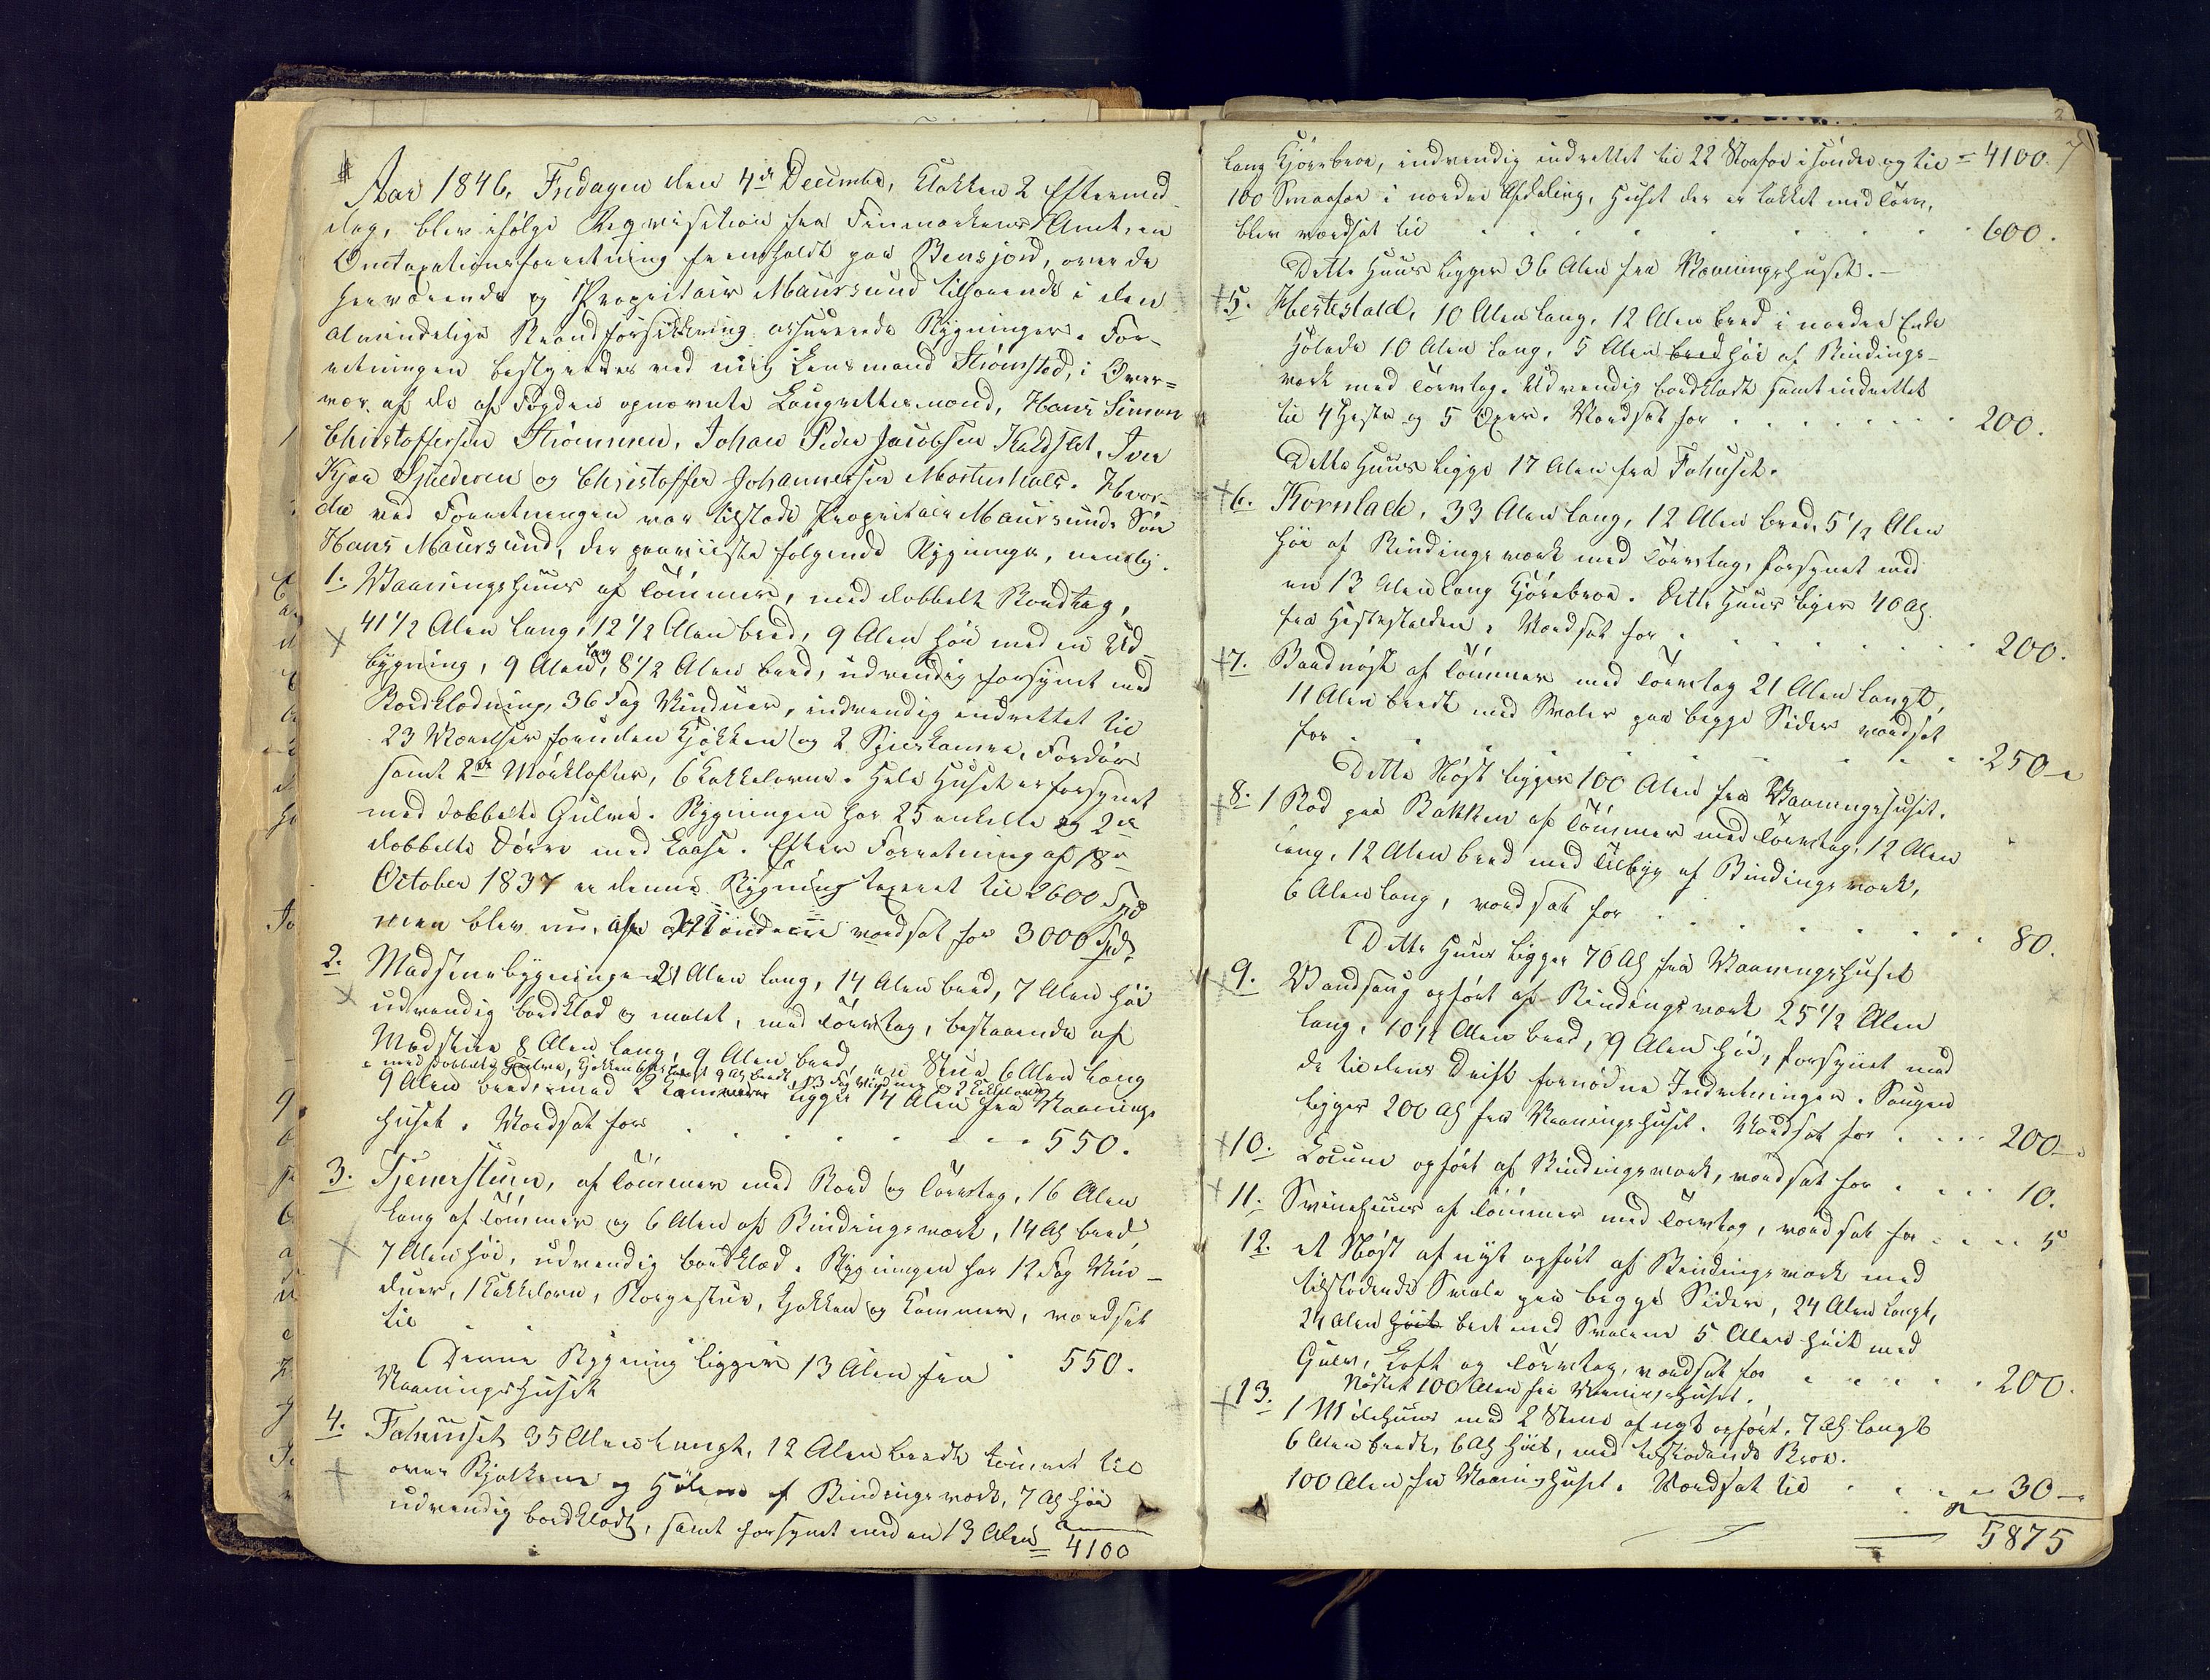 Aar 1846, Fredagen den 4de December, Klokken 2 Eftermid-
dag, blev ifølge Reqvisition fra Finmarkens Amt, en
Omtaxationsforretning fremholdt paa Bensjord, over de
herværende og Proprietair Maursund tilhørende i den
almindelige Brandforsikkring assurerede Bygninger. For-
retningen bestyredes ved mig Lensmand Strømsted, i Over-
vær af de af Fogden opnævnte Laugrettesmænd, Hans Simon
Christoffersen Strømmen, Johan Peder Jacobsen Kaldslet, Iver
Kjær og Christoffer Johannessen Mortenhals. Hvor-
da ved Forretningen var tilstæde Proprietair Maursunds Søn
Hans Maursund, der paaviiste følgende Bygninger, nemlig.
1. Vaaningshuus af Tømmer, med dobbelt Bordtag,
41 1/2 Alen lang, 12 1/2 Alen bred, 9 Alen høi med en Ud-
bygning, 9 Alen lang, 8 1/2 Alen bred, udvendig forsynet med
Bordklædning, 36 Fag Vinduer, indvendig indrettet til
23 Værelser foruden Kjøkken og 2 Spiiskamre,
samt 2de Mørklofter, 6 Kakkelovne. Hele Huset er forsynet
med dobbelte Gulve. Bygningen har 25 enkelte og 2de
dobbelte Dørre med Laase. Efter Forretning af 18de
October 1837 er denne Bygning taxeret til 2600 Spd
men blev nu af Mændene værdsat for 3000 Spd.
2. Madstuebygningen 21 Alen lang, 14 Alen bred, 7 Alen høi
udvendig bordklæd og malet, med Tørvtag, bestaaende af
Madstue 8 Alen lang, 9 Alen bred, en Stue 6 Alen lang
med dobbelte Gulve, Kjøkken 9 Al bredt, 13 Fag Vinduer og 2 Kakkelovne
9 Alen bred, med 2 Kammere ligger 14 Alen fra Vaanings-
huset. Værdsat for . . . . . . . 550.
3. Tjenerstuen, af Tømmer med Bord og Tørvtag, 16 Alen
lang af Tømmer og 6 Alen af Bindingsværk, 14 Al bred,
7 Alen høi, udvendig bordklæd. Bygningen har 12 Fag Vin-
duer, 1 Kakkelovn, Borgestue, Kjøkken og Kammer, værdsat
til . . . . 550.
Denne Bygning ligger 13 Alen fra
Vaaningshuset
4. Fæhuset 35 Alen langt, 12 Alen bredt tømret til
over Bjelkerne og Høladen af Bindingsværk, 7 Al høi
udvendig bordklædt, samt forsynet med en 13 Alen = 4100
7
lang Kjørebroe, indvendig indrettet til 22 Storfæ i søndre og til = 4100.
100 Smaafæ i nordre Afdeling, Huset der er takket med Tørv,
blev værdsat til . . . . . . . 600.
Dette Huus ligger 36 Alen fra Vaaningshuset.
5. Hestestald, 10 Alen lang, 12 Alen bred i nordre Ende
Hølade 10 Alen lang, 5 Alen bred høi af Bindings-
værk med Tørvtag. Udvendig bordklædt samt indrettet
til 4 Heste og 5 Oxer. Værdsat for . . . . . 200.
Dette Huus ligge 17 Alen fra Fæhuset.
6. Kornlade, 33 Alen lang, 12 Alen bred, 5 1/2 Alen
høi af Bindingsværk med Tørvtag, forsynet med
en 13 Alen lang Kjørebroe. Dette Huus ligger 40 Al
fra Hestestalden. Værdsat for . . . . . 200.
7. Baadnøst af Tømmer med Tørvtag 21 Alen langt,
11 Alen bredt med Svaler paa begge Sider værdsat
for . . . . . . . 250
Dette Nøst ligger 100 Alen fra Vaaningshuset.
8. 1 Bod paa Bakken af Tømmer med Tørvtag, 12 Alen
lang, 12 Alen bred med Tilbyg af Bindingsværk,
6 Alen lang, værdsat for . . . . . . 80.
Dette Huus ligger 70 Al fra Vaaningshuset
9. Vandsaug opført af Bindingsværk 25 1/2 Alen
lang, 10 1/2 Alen bred, 9 Alen høi, forsynet med
de til dens Drift fornødne Indretninger. Saugen
ligger 200 Al fra Vaaningshuset. Værdsat for . . . 200
10. Locum opført af Bindingsværk, værdsat for . . . 10.
11. Sviinehuus af Tømmer med Tørvtag, værdsat for . . . 5
12. et Nøst af nyt opført af Bindingsværk med
tilstødende Svale paa begge Sider, 24 Alen langt,
24 Alen høit bredt med Svalene 5 Alen høit med
Gulv, Loft og Tørvtag, værdsat for . . . . . 200.
Nøstet 100 Alen fra Vaaningshuset.
13. 1 Møllehuus med 2 Stene af nyt opført, 7 Al langt
6 Alen bredt, 6 Al høit, med tilstødende Broe.
100 Alen fra Vaaningshuset. Værdsat til . . . 30
5875